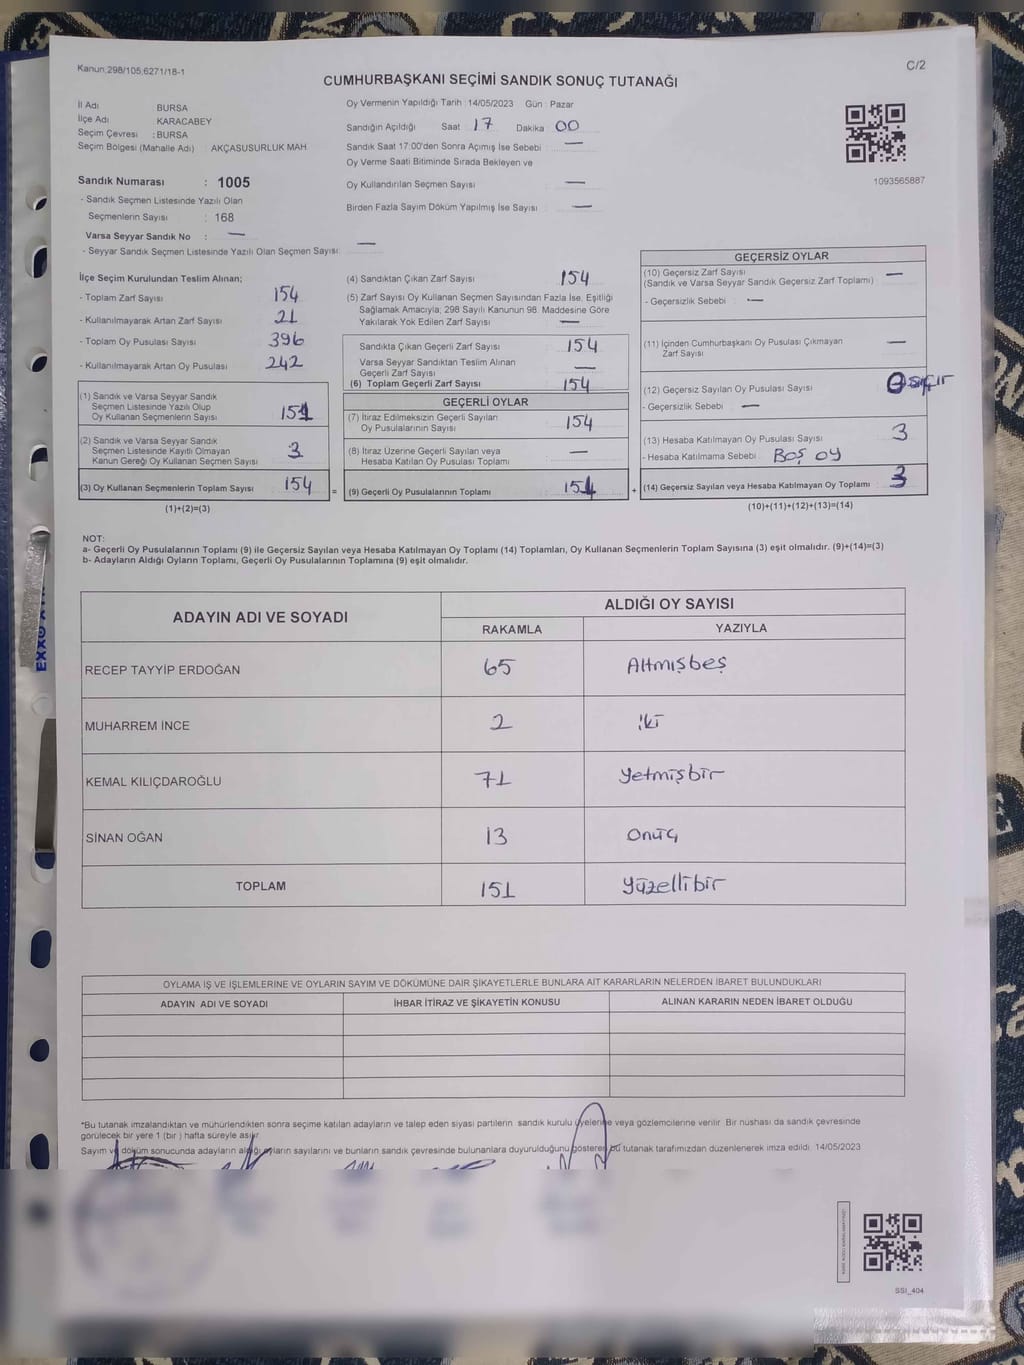 Kanun:298/105,6271/18-1
C/2
CUMHURBAŞKANI SEÇİMİ SANDIK SONUÇ TUTANAĞI
İl Adı BURSA
İlçe Adı KARACABEY
Seçim Çevresi : BURSA
Seçim Bölgesi (Mahalle Adı) : AKÇASUSURLUK MAH.
Sandık Numarası : 1005
- Sandık Seçmen Listesinde Yazılı Olan
Seçmenlerin Sayısı : 168
Varsa Seyyar Sandık No : —
- Seyyar Sandık Seçmen Listesinde Yazılı Olan Seçmen Sayısı: —
Oy Vermenin Yapıldığı Tarih : 14/05/2023 Gün : Pazar
Sandığın Açıldığı Saat 17 Dakika 00
Sandık Saat 17:00'den Sonra Açımış İse Sebebi : —
Oy Verme Saati Bitiminde Sırada Bekleyen ve
Oy Kullandırılan Seçmen Sayısı : —
Birden Fazla Sayım Döküm Yapılmış İse Sayısı : —
1093565887
İlçe Seçim Kurulundan Teslim Alınan;
- Toplam Zarf Sayısı 154
- Kullanılmayarak Artan Zarf Sayısı 21
- Toplam Oy Pusulası Sayısı 396
- Kullanılmayarak Artan Oy Pusulası 242
(1) Sandık ve Varsa Seyyar Sandık
Seçmen Listesinde Yazılı Olup
Oy Kullanan Seçmenlerin Sayısı 151
(2) Sandık ve Varsa Seyyar Sandık
Seçmen Listesinde Kayıtlı Olmayan
Kanun Gereği Oy Kullanan Seçmen Sayısı 3
(3) Oy Kullanan Seçmenlerin Toplam Sayısı 154 =
(1)+(2)=(3)
(4) Sandıktan Çıkan Zarf Sayısı 154
(5) Zarf Sayısı Oy Kullanan Seçmen Sayısından Fazla İse, Eşitliği
Sağlamak Amacıyla; 298 Sayılı Kanunun 98. Maddesine Göre
Yakılarak Yok Edilen Zarf Sayısı —
Sandıkta Çıkan Geçerli Zarf Sayısı 154
Varsa Seyyar Sandıktan Teslim Alınan
Geçerli Zarf Sayısı —
(6) Toplam Geçerli Zarf Sayısı 154
GEÇERLİ OYLAR
(7) İtiraz Edilmeksizin Geçerli Sayılan
Oy Pusulalarının Sayısı 154
(8) İtiraz Üzerine Geçerli Sayılan veya
Hesaba Katılan Oy Pusulası Toplamı —
(9) Geçerli Oy Pusulalarının Toplamı 151 +
GEÇERSİZ OYLAR
(10) Geçersiz Zarf Sayısı —
(Sandık ve Varsa Seyyar Sandık Geçersiz Zarf Toplamı)
- Geçersizlik Sebebi : —
(11) İçinden Cumhurbaşkanı Oy Pusulası Çıkmayan —
Zarf Sayısı
(12) Geçersiz Sayılan Oy Pusulası Sayısı 0 sıfır
- Geçersizlik Sebebi : —
(13) Hesaba Katılmayan Oy Pusulası Sayısı 3
- Hesaba Katılmama Sebebi : Boş oy
(14) Geçersiz Sayılan veya Hesaba Katılmayan Oy Toplamı : 3
(10)+(11)+(12)+(13)=(14)
NOT:
a- Geçerli Oy Pusulalarının Toplamı (9) ile Geçersiz Sayılan veya Hesaba Katılmayan Oy Toplamı (14) Toplamları, Oy Kullanan Seçmenlerin Toplam Sayısına (3) eşit olmalıdır. (9)+(14)=(3)
b- Adayların Aldığı Oyların Toplamı, Geçerli Oy Pusulalarının Toplamına (9) eşit olmalıdır.
ADAYIN ADI VE SOYADI
ALDIĞI OY SAYISI
RAKAMLA YAZIYLA
RECEP TAYYİP ERDOĞAN 65 Altmışbeş
MUHARREM İNCE 2 iki
KEMAL KILIÇDAROĞLU 71 yetmişbir
SİNAN OĞAN 13 Onüç
TOPLAM 151 yüzellibir
OYLAMA İŞ VE İŞLEMLERİNE VE OYLARIN SAYIM VE DÖKÜMÜNE DAİR ŞİKAYETLERLE BUNLARA AİT KARARLARIN NELERDEN İBARET BULUNDUKLARI
ADAYIN ADI VE SOYADI İHBAR İTİRAZ VE ŞİKAYETİN KONUSU ALINAN KARARIN NEDEN İBARET OLDUĞU
*Bu tutanak imzalandıktan ve mühürlendikten sonra seçime katılan adayların ve talep eden siyasi partilerin sandık kurulu üyelerine veya gözlemcilerine verilir. Bir nüshası da sandık çevresinde
görülecek bir yere 1 (bir ) hafta süreyle asılır.
Sayım ve döküm sonucunda adayların aldığı oyların sayılarını ve bunların sandık çevresinde bulunanlara duyurulduğunu gösteren bu tutanak tarafımızdan düzenlenerek imza edildi. 14/05/2023
SSI_404